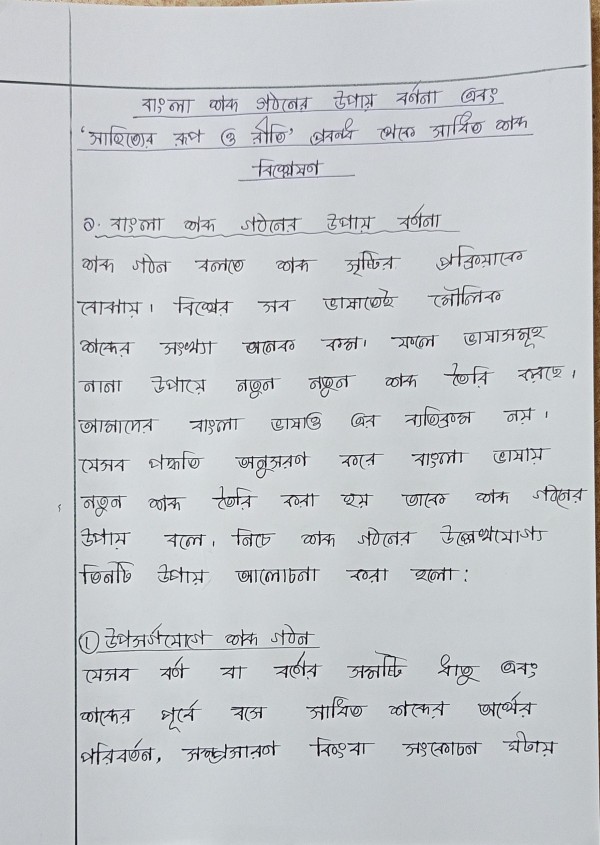 বাংলা শব্দ গঠনের উপায় বর্ণনা এবং
'সাহিত্যের রূপ ও রীতি' প্রবন্ধ থেকে সাধিত শব্দ
বিশ্লেষণ
ক. বাংলা শব্দ গঠনের উপায় বর্ণনা
শব্দ গঠন বলতে শব্দ সৃষ্টির প্রক্রিয়াকে
বোঝায়। বিশ্বের সব ভাষাতেই মৌলিক
শব্দের সংখ্যা অনেক কম। ফলে ভাষাসমূহ
নানা উপায়ে নতুন নতুন শব্দ তৈরি করছে।
আমাদের বাংলা ভাষাও এর ব্যতিক্রম নয়।
যেসব পদ্ধতি অনুসরণ করে বাংলা ভাষায়
নতুন শব্দ তৈরি করা হয় তাকে শব্দ গঠনের
উপায় বলে। নিচে শব্দ গঠনের উল্লেখযোগ্য
তিনটি উপায় আলোচনা করা হলো:
① উপসর্গযোগে শব্দ গঠন
যেসব বর্ণ বা বর্ণের সমষ্টি ধাতু এবং
শব্দের পূর্বে বসে সাধিত শব্দের অর্থের
পরিবর্তন, সম্প্রসারণ কিংবা সংকোচন ঘটায়